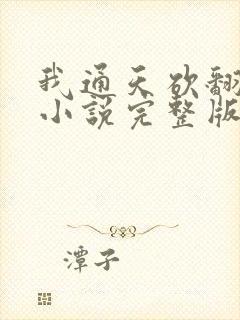 我通天欲翻
小說完整版
潭子